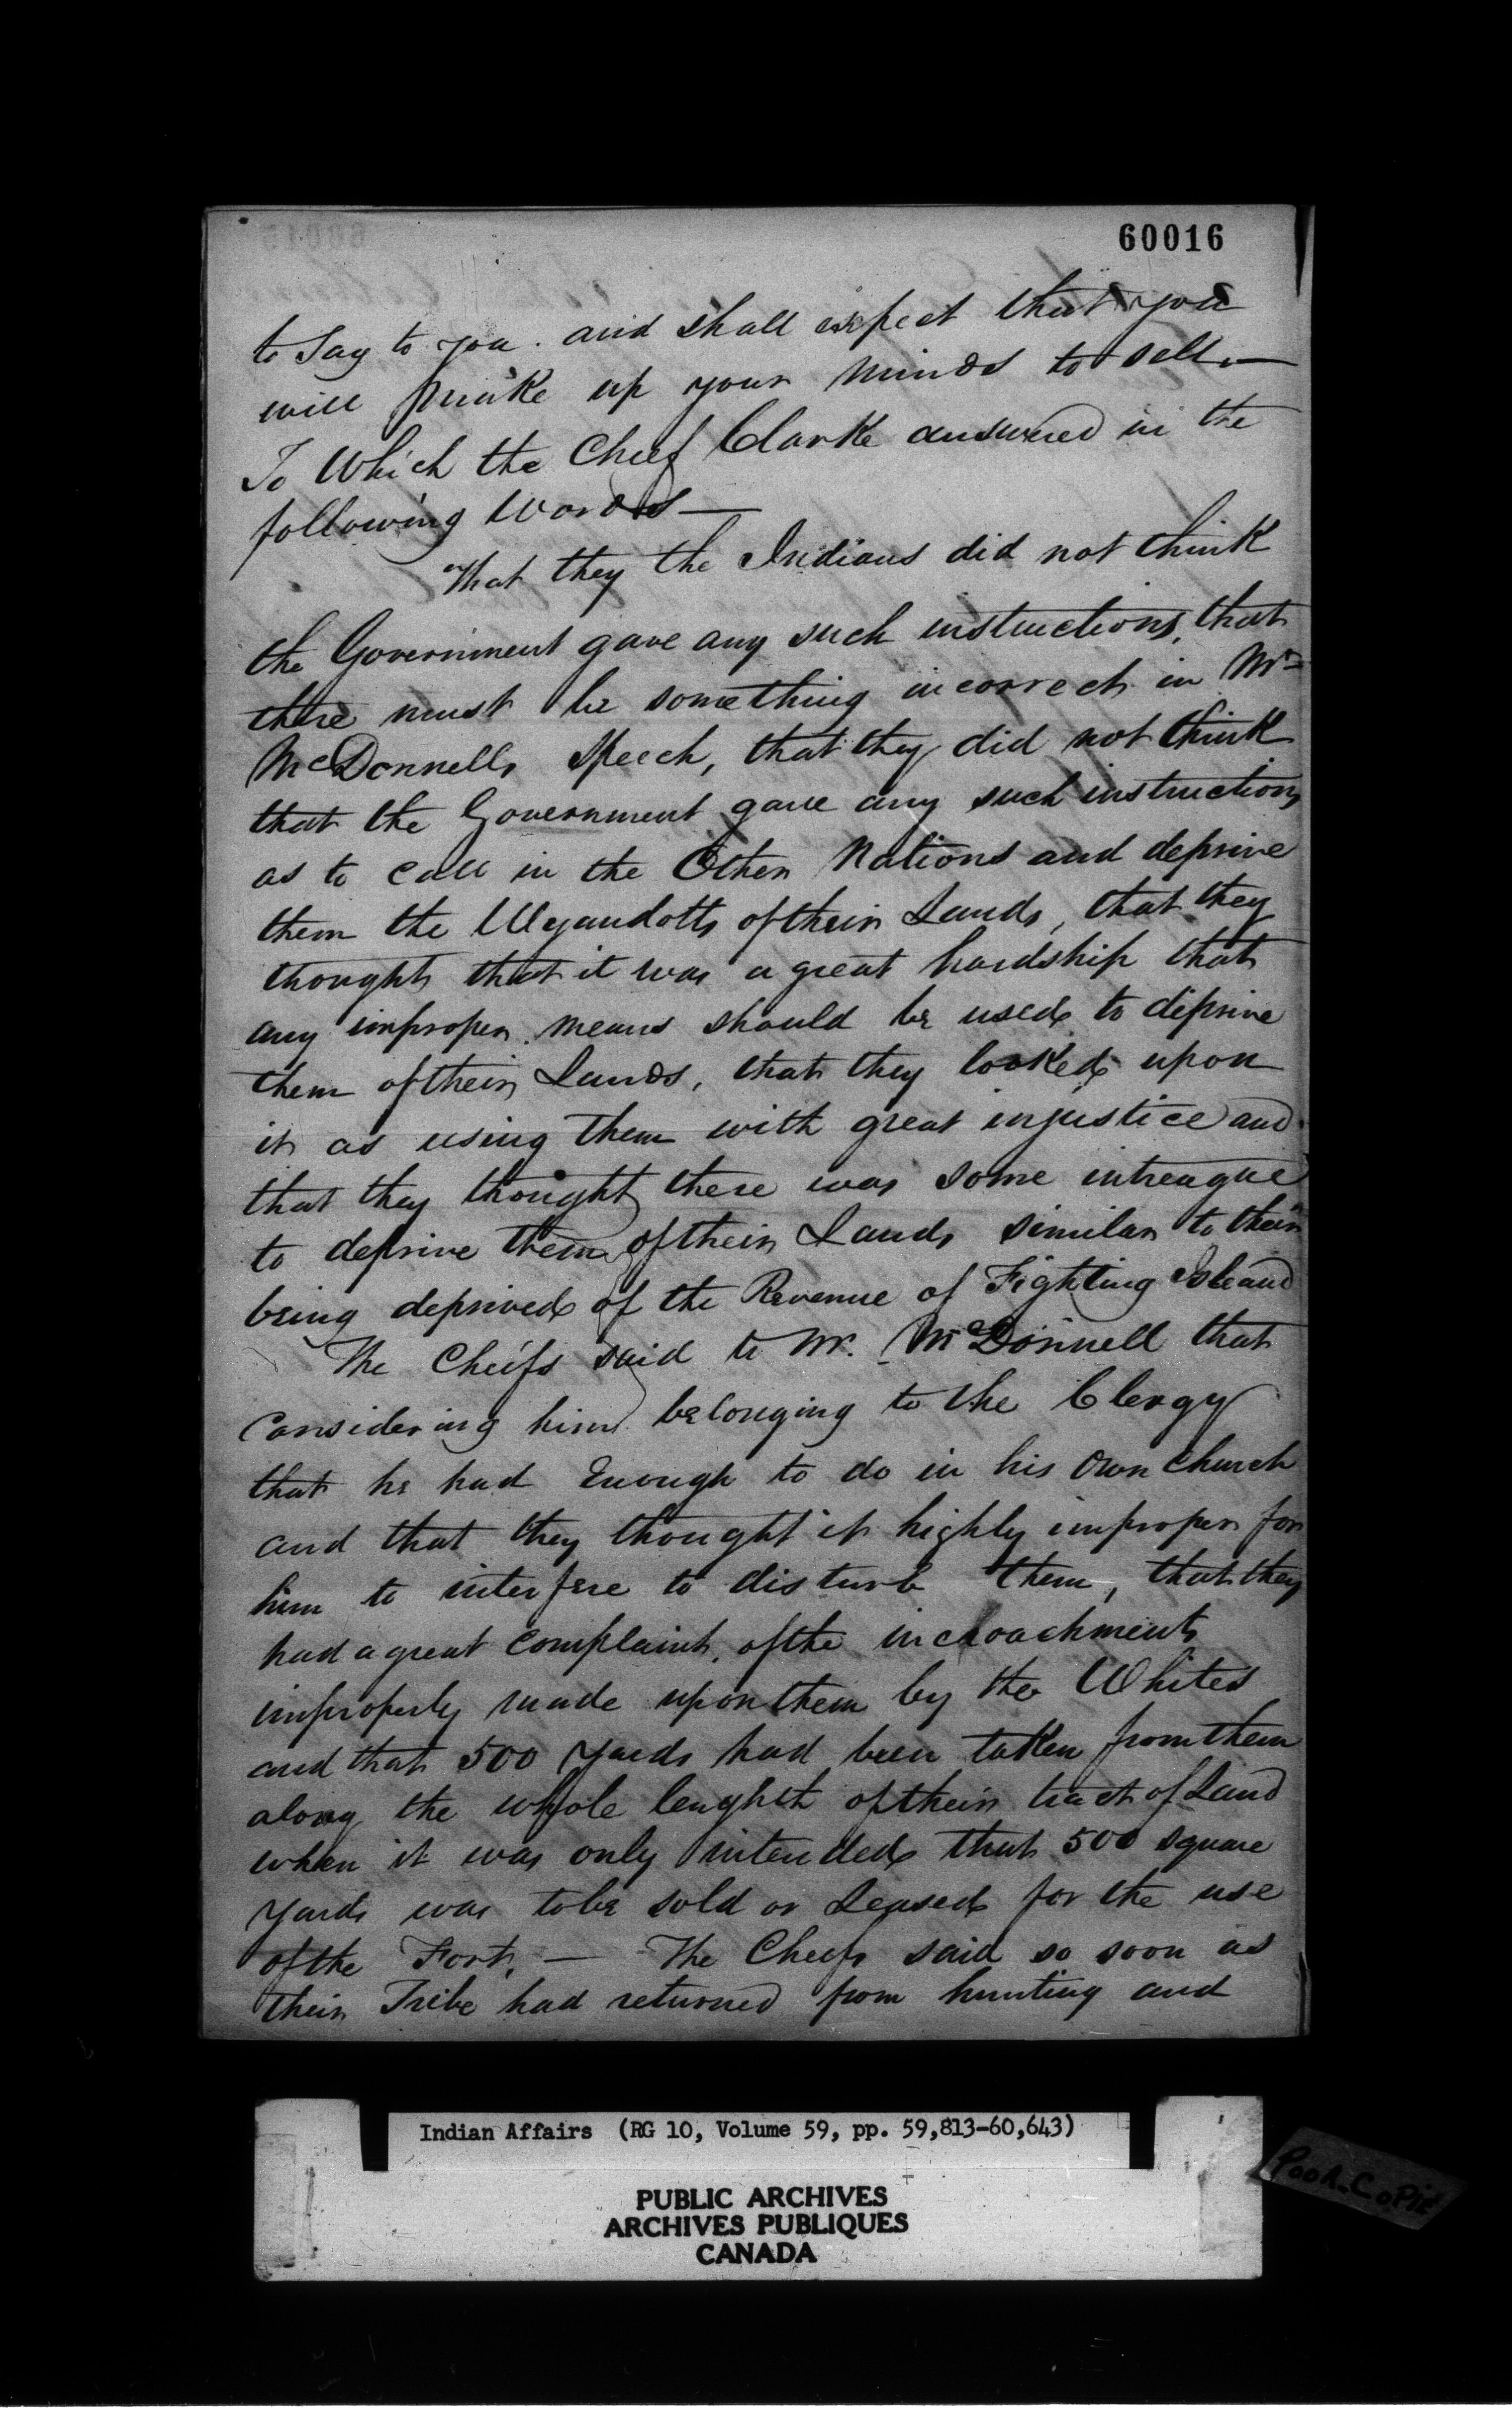 60016
to Say to you. and shall expect that you
will make up your minds to sell —
To Which the Cheef Clarke answered in the
following Words —
That they the Indians did not think
the Government gave any such instructions, that
there must be something incorrect in Mr
McDonnells Speech, that they did not think
that the Government gave any such instructions
as to call in the Other Nations and deprive
them the Wyandotts of their Lands, that they
thought that it was a great hardship that
any improper means should be used to deprive
them of their Lands, that they looked upon
it as using them with great injustice and
that they thought there was some intreague
to deprive them of their Lands similar to their
being deprived of the Revenue of Fighting Island
The Cheifs said to Mr. McDonnell that
Considering him belonging to the Clergy
that he had Enough to do in his Own Church
and that they thought it highly improper for
him to interfere to disturb them, that they
had a great Complaint, of the incroachments
improperly made upon them by the Whites
and that 500 Yards had been taken from them
along the whole lenghth of their tract of Land
when it was only intended that 500 square
Yards was to be sold or Leased for the use
of the Fort, — The Cheefs said so soon as
their Tribe had returned from hunting and
Indian Affairs (RG 10, Volume 59, pp. 59,813-60,643)
PUBLIC ARCHIVES
ARCHIVES PUBLIQUES
CANADA
Poor Copie